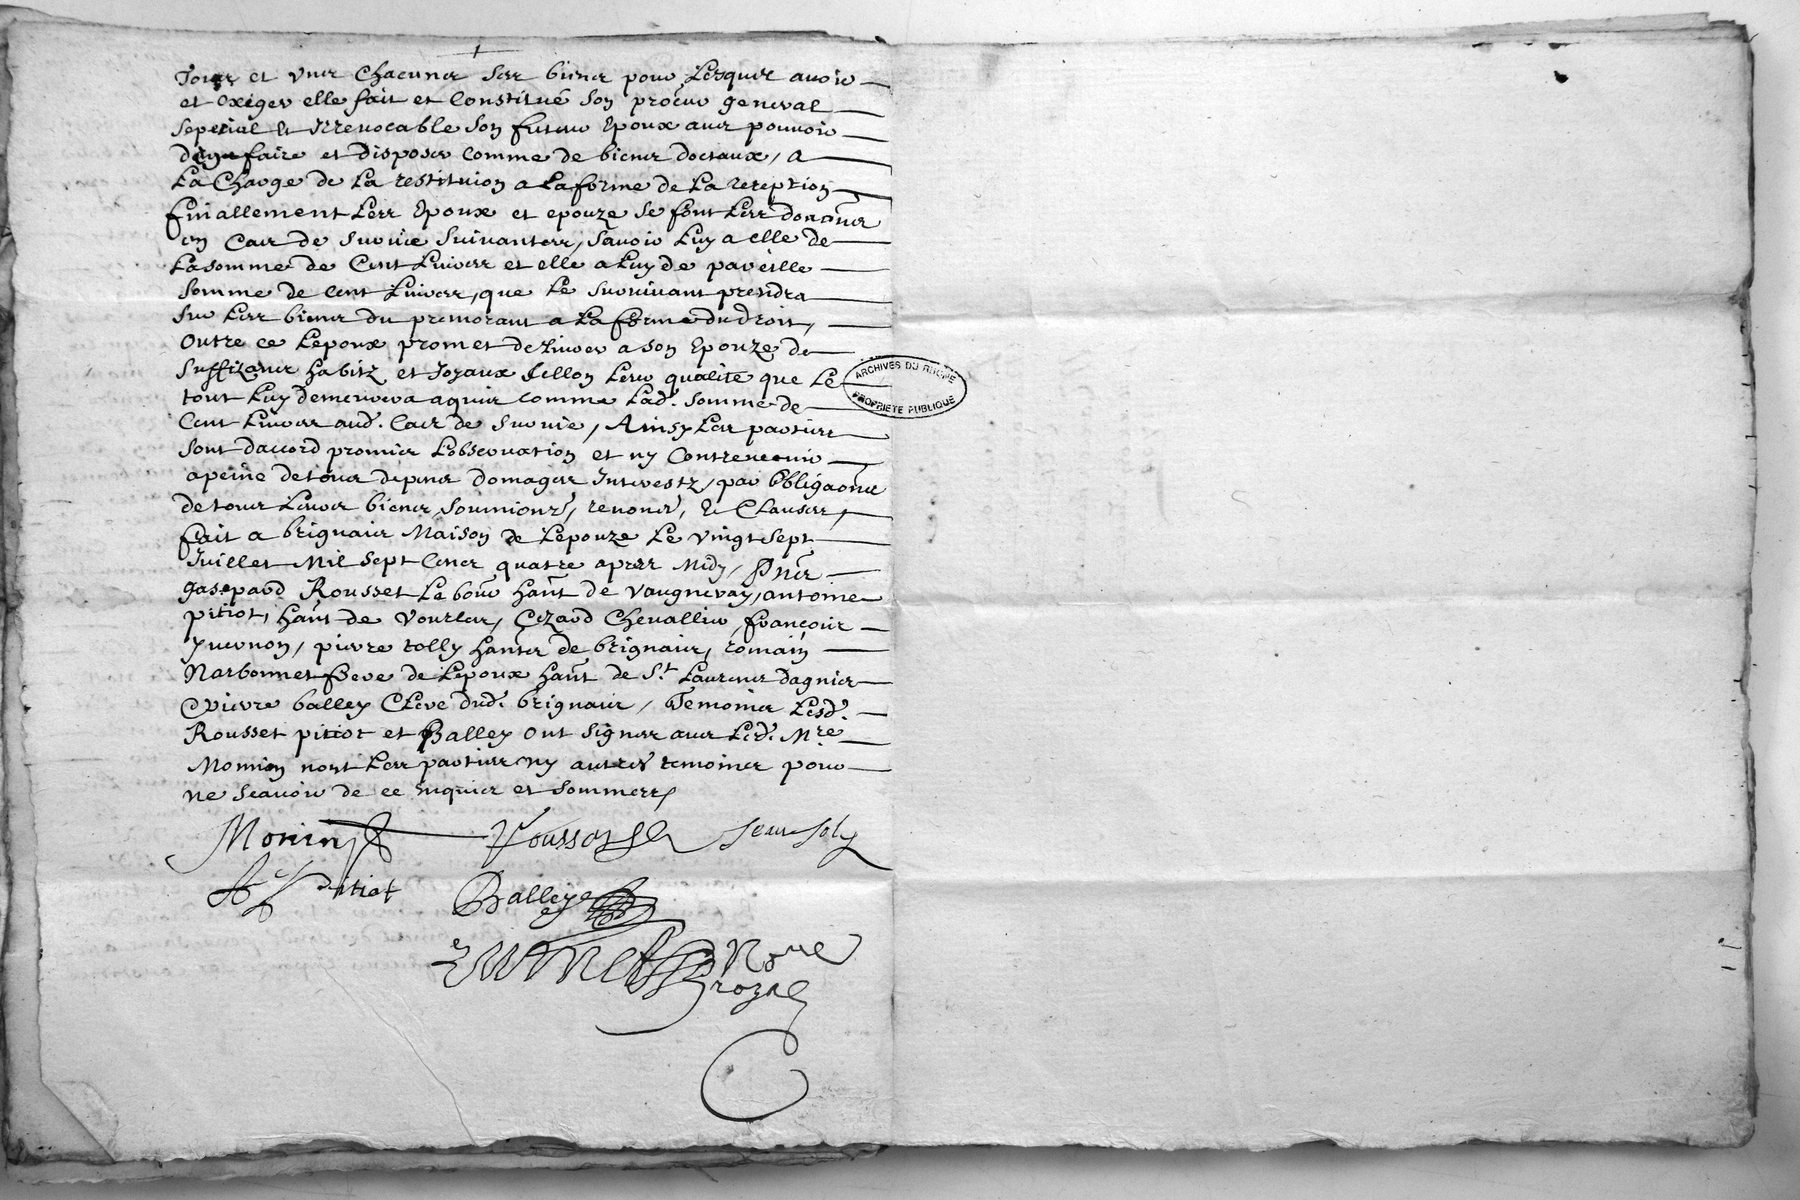 Tous et uns chacuns ses biens pour lesquels avoir
et exiger elle fait et constitué son procur general
sepecial et irrevocable son futur epoux avec pouvoir
den faire et disposer comme de biens doctaux, a
la charge de la restituion a la forme de la reception
finallement lesd epoux et epouze se font les dona͠ons
en cas de survie suivantes, savoir luy a elle de
la somme de cent livres et elle a luy de pareille
somme de cent livres, que le survivant prendra
sur les biens du premorant a la forme du droit,
outre ce lepoux promet delivrer a son epouze de
suffizans habitz et joyaux sellon leur qualite que le
tout luy demeurera aquis comme lad. somme de
cent livres aud. cas de survie, Ainsy les parties
sont daccord promis lobservation et ny contrevenir
a peine de tous depens domages interestz, par obliga͠ons
de tous leurs biens, soumions, renons, et clauses,
fait a brignais maison de lepouze le vingt sept
Juillet mil sept cens quatre apres midy, p͠ns
gasepard Rousset la͠bour ha͠nt de vaugneray, antoine
pitiot, ha͠nt de vourles, Cezard Chevallier, françois
yvernon, pierre tolly ha͠nts de brignais, romain
Narbonnet frere de lepoux ha͠nt de St laurens dagnier
pierre balley Clerc dud. brignais, temoins lesd.
Rousset pitiot et Balley ont signes avec led. Mre
Monnin nont les parties ny autres temoins pour
ne scavoir de ce enquis et sommes,
Monin Rousset Jean Joly
pitiot Balleye
Nore
royal
ARCHIVES DU RHONE
PROPRIETE PUBLIQUE